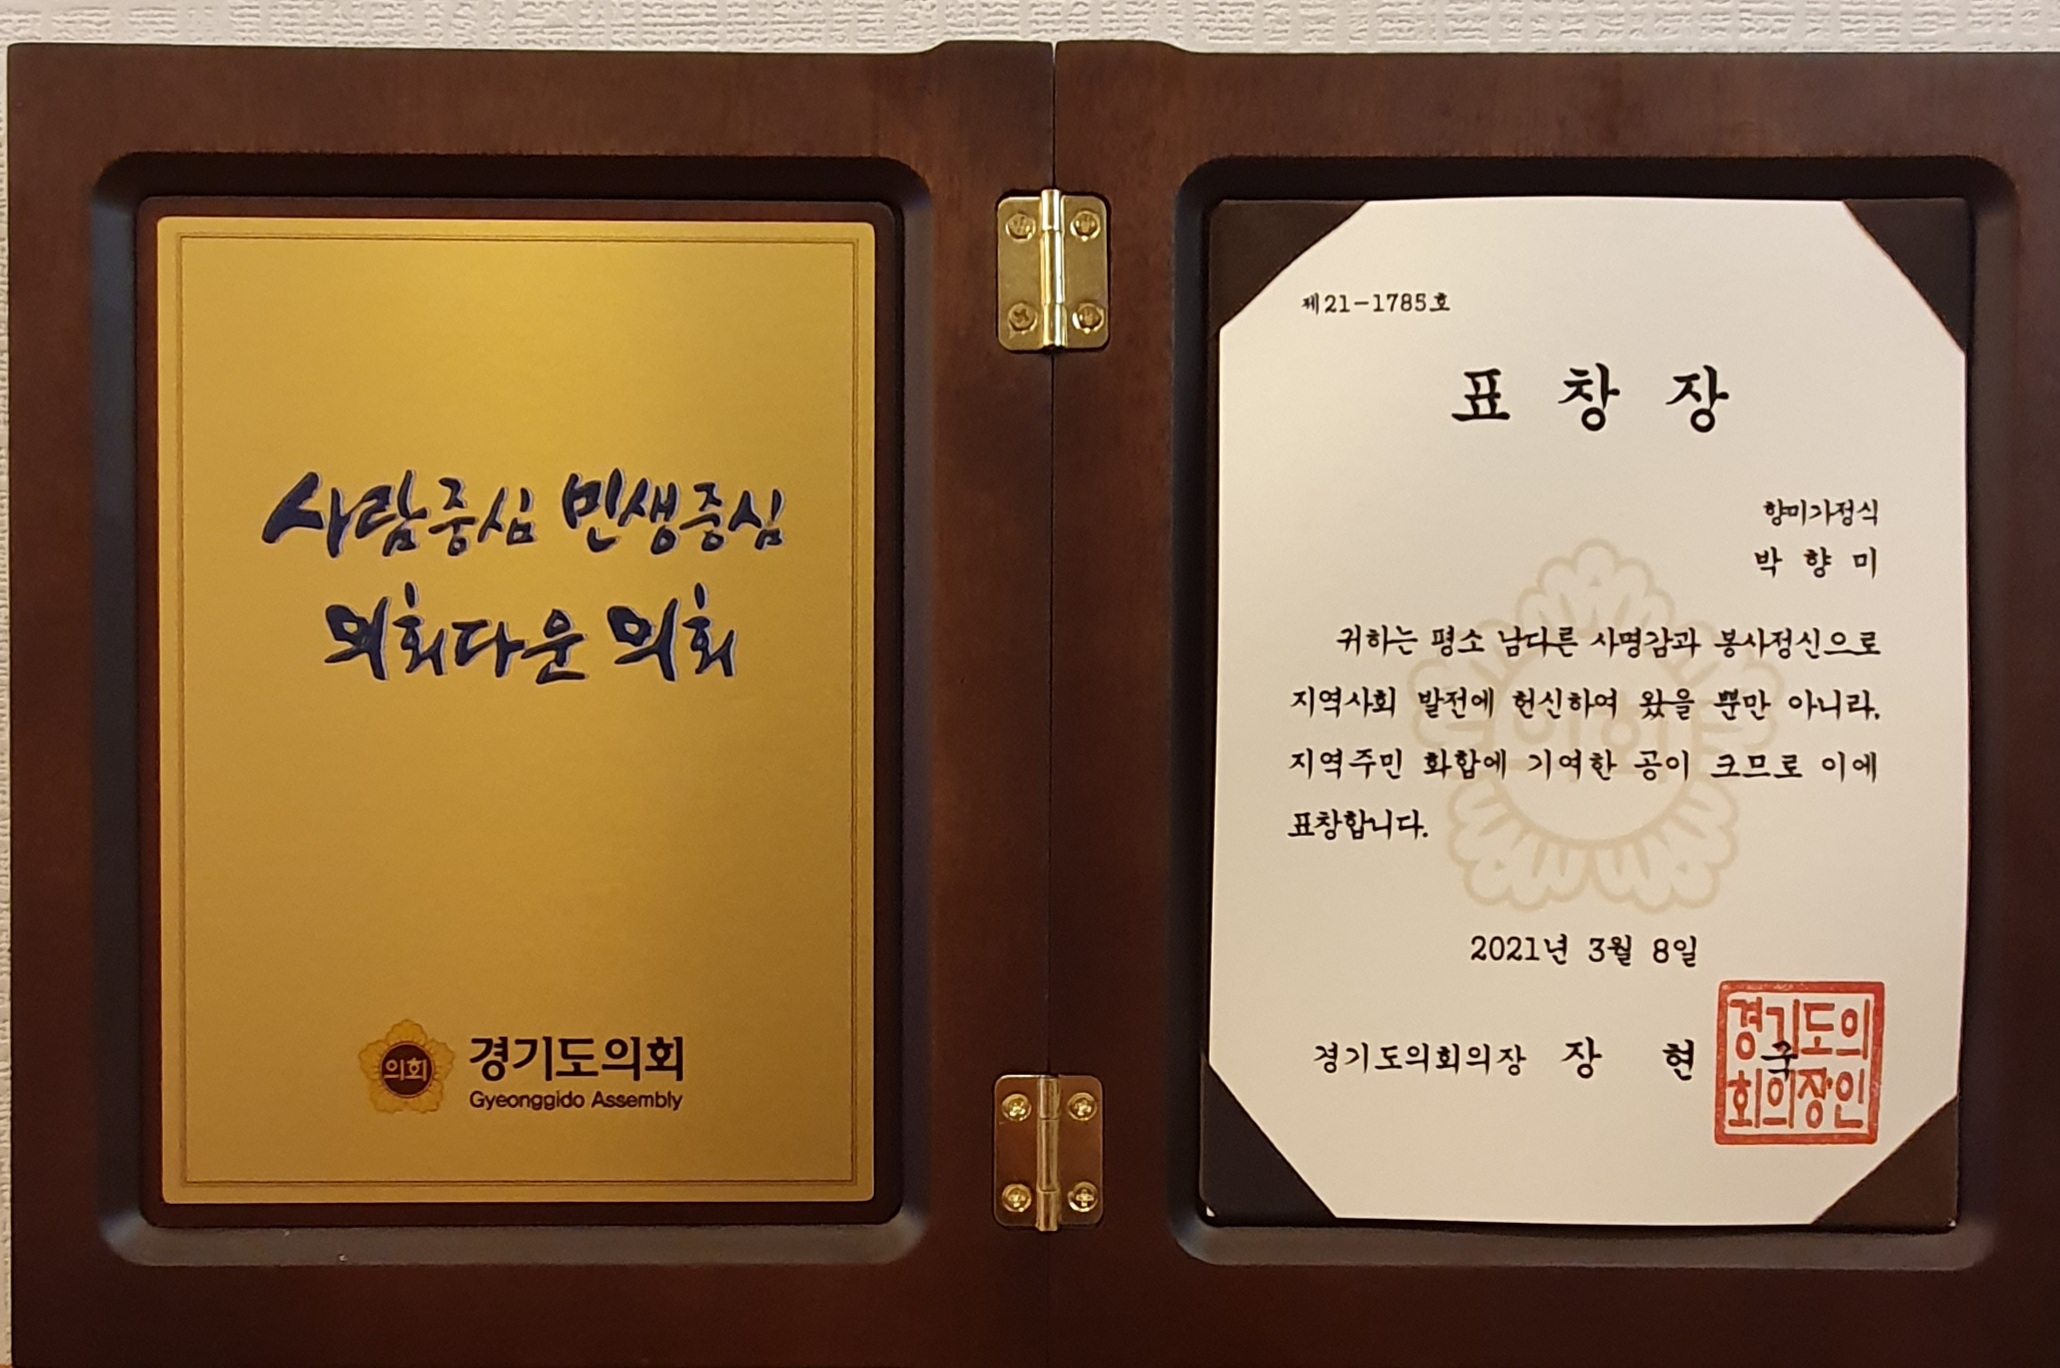 사람중심 민생중심
의회다운 의회
의회
경기도의회
Gyeonggido Assembly
제21-1785호
표 창 장
향미가정식
박 향 미
귀하는 평소 남다른 사명감과 봉사정신으로
지역사회 발전에 헌신하여 왔을 뿐만 아니라,
지역주민 화합에 기여한 공이 크므로 이에
표창합니다.
의회
2021년 3월 8일
경기도의회의장 장 현 국
경기도의
회의장인